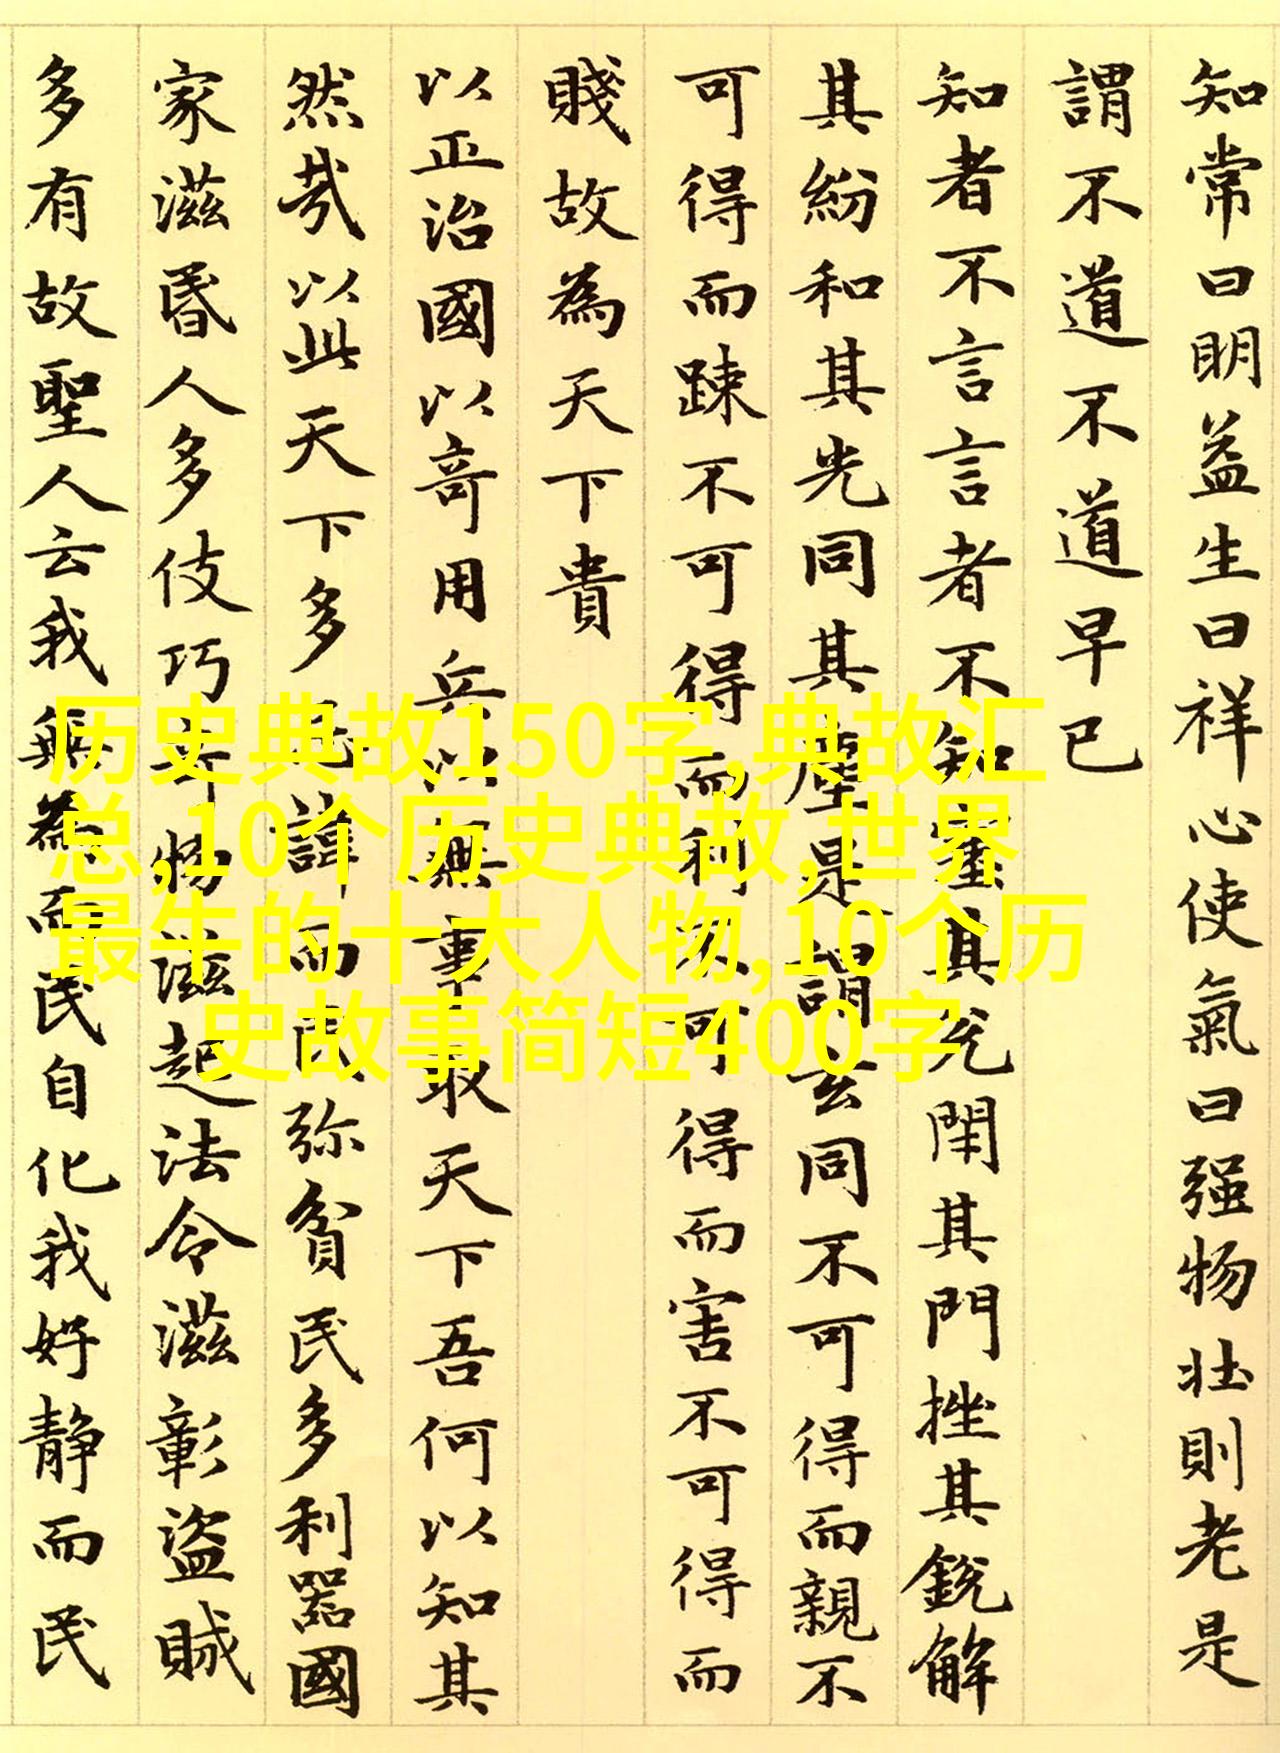 知常曰明益生曰祥心使氣曰强物壯則老是
謂不道不道早已
知者不言言者不知塞其兌閇其門挫其銳解
其紛和其光同其塵是謂玄同不可得而親不
可得而踈不可得而利不可得而害不可得而
賤故為天下貴
以正治國以奇用兵以無事取天下吾何以知其
然㢤以此天下多忌諱而民弥貧民多利器國
家滋昬人多伎巧奇物滋起法令滋彰盜賊
多有故聖人云我無為而民自化我好静而民
历史典故150字,典故汇
总,10个历史典故,世界
最牛的十大人物,10个历
史故事简短400字